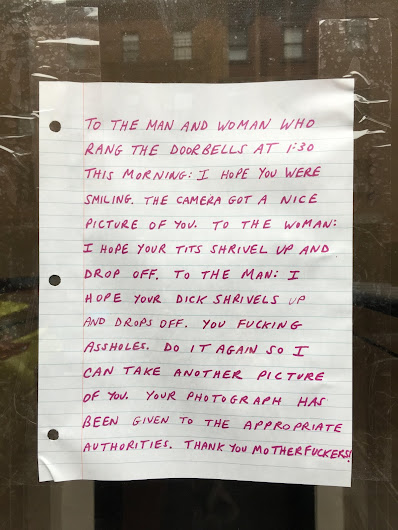 TO THE MAN AND WOMAN WHO
RANG THE DOORBELLS AT 1:30
THIS MORNING: I HOPE YOU WERE
SMILING. THE CAMERA GOT A NICE
PICTURE OF YOU. TO THE WOMAN:
I HOPE YOUR TITS SHRIVEL UP AND
DROP OFF. TO THE MAN: I
HOPE YOUR DICK SHRIVELS UP
AND DROPS OFF. YOU FUCKING
ASSHOLES. DO IT AGAIN SO I
CAN TAKE ANOTHER PICTURE
OF YOU. YOUR PHOTOGRAPH HAS
BEEN GIVEN TO THE APPROPRIATE
AUTHORITIES. THANK YOU MOTHERFUCKERS!